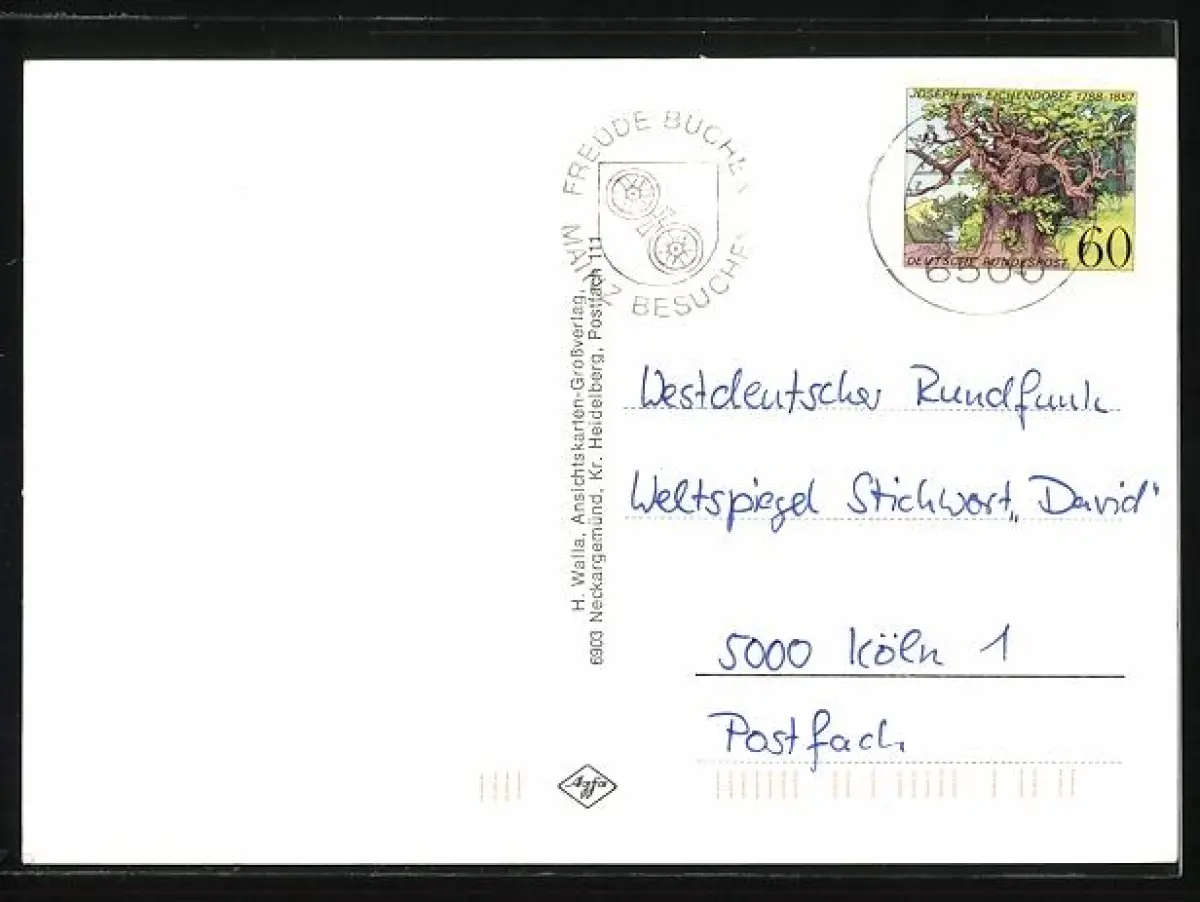 JOSEPH von EICHENDORFF 1788-1857
DEUTSCHE BUNDESPOST 60
FREUDE BUCHEN
MAINZ BESUCHEN
6500
H. Walla, Ansichtskarten-Großverlag,
6903 Neckargemünd, Kr. Heidelberg, Postfach 111
Westdeutscher Rundfunk
Weltspiegel Stichwort „David"
5000 Köln 1
Postfach
Agfa